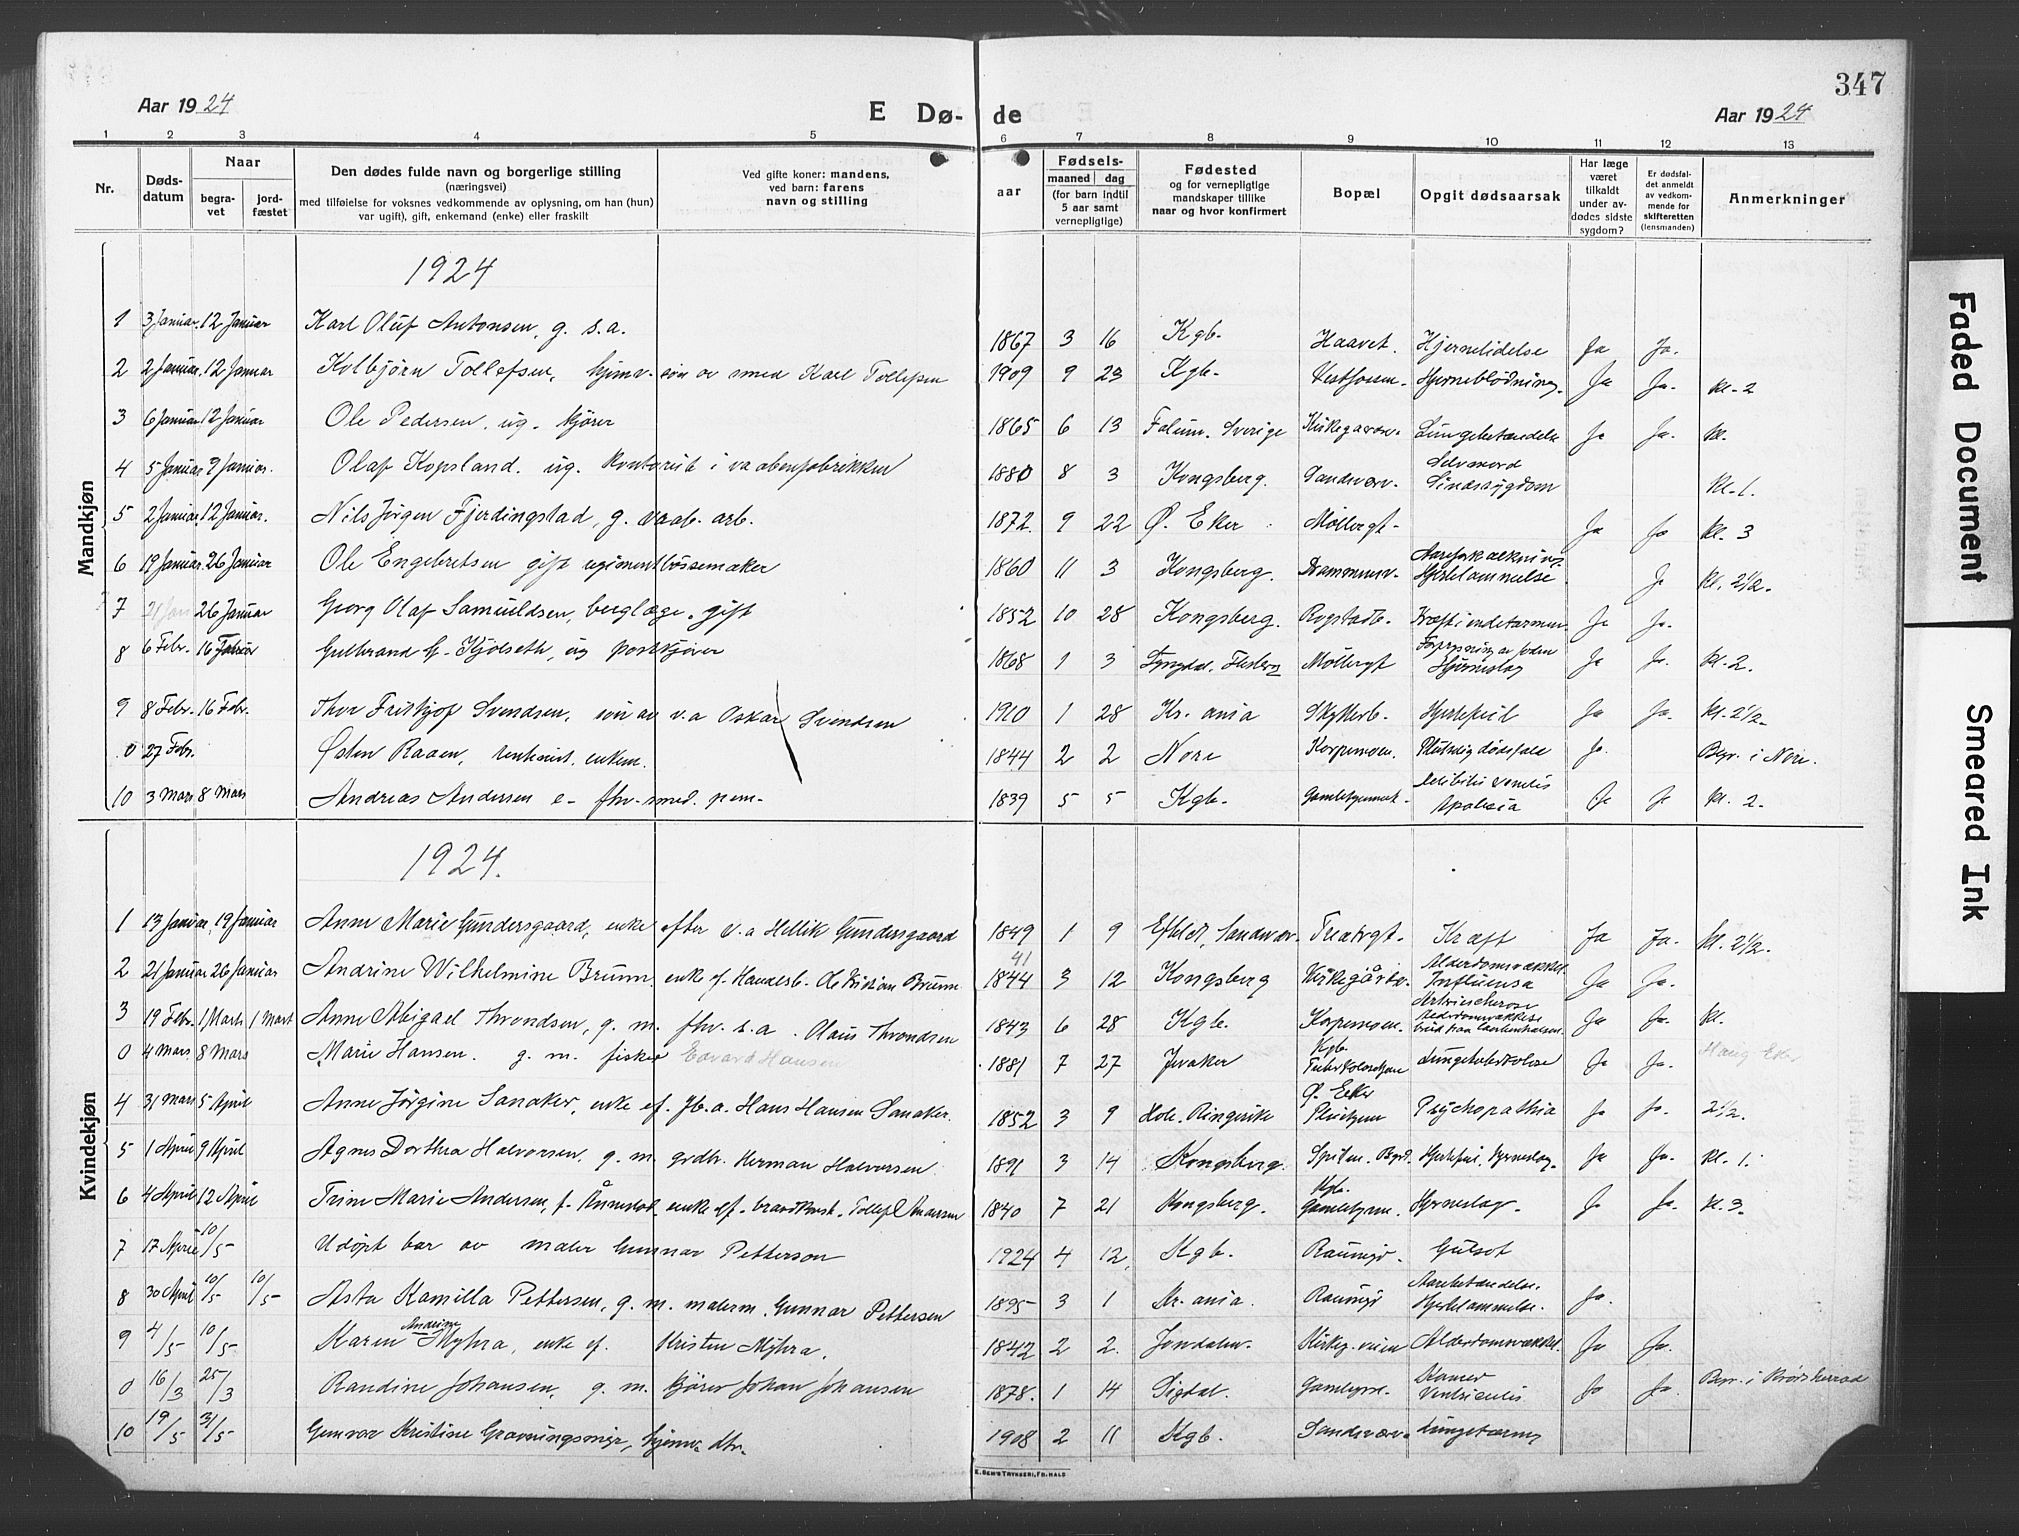 347
Aar 1924 E Dø- de Aar 1924
1 2 3 4 5 6 7 8 9 10 11 12 13
Nr. Dødsdatum Naar begravet jordfæstet
Den dødes fulde navn og borgerlige stilling
(næringsvei)
med tilføielse for voksnes vedkommende av oplysning, om han (hun)
var ugift), gift, enkemand (enke) eller fraskilt
Ved gifte koner: mandens,
ved barn: farens
navn og stilling
aar
Fødsels-
maaned dag
(for barn indtil
5 aar samt
vernepligtige)
Fødested
og for vernepligtige
mandskaper tillike
naar og hvor konfirmert
Bopæl
Opgit dødsaarsak
Har læge
været
tilkaldt
under av-
dødes sidste
sygdom?
Er dødsfal-
det anmeldt
av vedkom-
mende for
skifteretten
(lensmanden)
Anmerkninger
Mandkjøn
1924
1 3 Januar. 12 Januar Karl Oluf Antonsen, g. s.a. 1867 3 16 Kgb. Haavet. Hjernelidelse Ja Ja.
2 2 Januar. 12 Januar Kolbjørn Tollefsen, hjmv. søn av smed Karl Tollefsen 1909 9 23 Kgb. Vestfossen. Hjerneblødning. Ja Ja. kl. 2
3 6 Januar 12 Januar Ole Pedersen. ug. kjører 1865 6 13 Falun. Sverige Lungebetændelse Ja Ja. kl.
4 5 Januar 9 Januar. Olaf Kopsland. ug. kontorist i vaabenfabrikken 1880 8 3 Kongsberg. Sandsværv. Selvmord Sindssygdom kl. 1.
5 2 Januar. 12 Januar. Nils Jørgen Fjerdingstad, g. vaab. arb. 1872. 9 22 Ø. Eker Møllergt. Ja Ja kl. 3
6 19 Januar. 26 Januar Ole Engebretsen gift regiment bøssemaker 1860 11 3 Kongsberg. Drammensv. Aareforkalkning. Hjertelammelse. Ja kl. 2½.
7 21 Jan 26 Januar Georg Olaf Samuelsen, berglæge. gift 1852 10 28 Kongsberg. Rogstadb. Kræft i endetarmen. Ja Ja.
8 6 Febr. 16 Februar Gulbrand G. Kjølseth, ug postkjører 1868 1 3 Møllergt Hjerneslag Ja Ja. kl. 2.
9 8 Febr. 16 Febr. Thor Fritkjof Svendsen, søn av v.a Oskar Svendsen 1910 1 28 Kr. ania Skytterb. Hjertefeil Ja Ja. kl. 2½.
0 27 Febr. Østen Raaen, rentenist, enkem. 1844 2 2 Nore Korpemoen. Plutselig dødsfald Ja. Begr. i Nore.
10 3 Mars 8 Mars Andreas Andersen e. fhv. smed. pen. 1839 5 5 Kgb. Apoleksia Ja Ja kl. 2.
Kvindekjøn
1924.
1 13 Januar. 19 Januar Anne Marie Gundersgaard, enke efter v.a Hellik Gundersgaard 1849 1 9 Efteløt, Sandsvær. Kræft Ja Ja. kl. 2½.
2 21 Januar 26 Januar Andrine Wilhelmine Bruun, enke ef. Handelsb. Ole Kristian Bruun 1844 41 3 12 Kongsberg Kirkegårdsv. Alderdomsvækkelse Influensa Ja Ja.
3 19 Febr. 1 Mars 1 Mart Anne Abigael Throndsen, g. m. fhv. s.a. Olaus Throndsen 1843 6 28 Kgb. Korpemoen. Ja Ja. kl.
0 4 Mars 8 Mars Marie Hansen. g. m. fisker Edvard Hansen 1881 7 27 Jevaker Kgb. Tuberkulosehjem Lungetuberkulose Ja Ja. Haug
4 31 Mars 5 April Anne Jørgine Sanaker, enke ef. Jb.a. Hans Hansen Sanaker. 1852 3 9 Hole. Ringerike Ø. Eker Pleiehjem Psychopathia Ja Ja. 2½.
5 1 April 9 April Agnes Dorthea Halvorsen, g. m. grdbr. Herman Halvorsen. 1891 3 14 Kongsberg. Hjertefeil, Hjerneslag. Ja Ja. kl. 1.
6 4 April 12 April Trine Marie Andersen, f. enke ef. Tollef Andersen 1840 7 21 Kongsberg. Kgb. Gamlehjem. Hjerneslag. Ja Ja. kl. 3.
7 17 April 10/5 Udøpt bar av maler Gunnar Petterson 1924 4 12. Kgb. Raumyr. Gulsot
8 30 April 10/5 10/5 Asta Kamilla Pettersen, g. m. malerm. Gunnar Pettersen 1895 3 1 Kr. ania. Raumyr Aarebetændelse. Hjertelammelse. Ja.
9 4/5 10/5 Karen Andrine Myhra, enke ef. Kristen Myhra. 1842 2 2. Jondalen. Kirkeg. veien Alderdomsvækkel. Ja Ja.
0 16/3 25/3 Randine Johansen, g. m. kjører Johan Johansen 1878. 1 14 Sigdal. Ventriculis Ja Ja Begr. i Krødsherrad
10 19/5 31/5 Gunvor Kristine Gravningsmyr, hjemv. dtr. 1908 2 11 Kgb. Sandsværv. Lungetæring
E. SEM'S TRYKKERI, FR. HALD
Faded Document
Smeared Ink